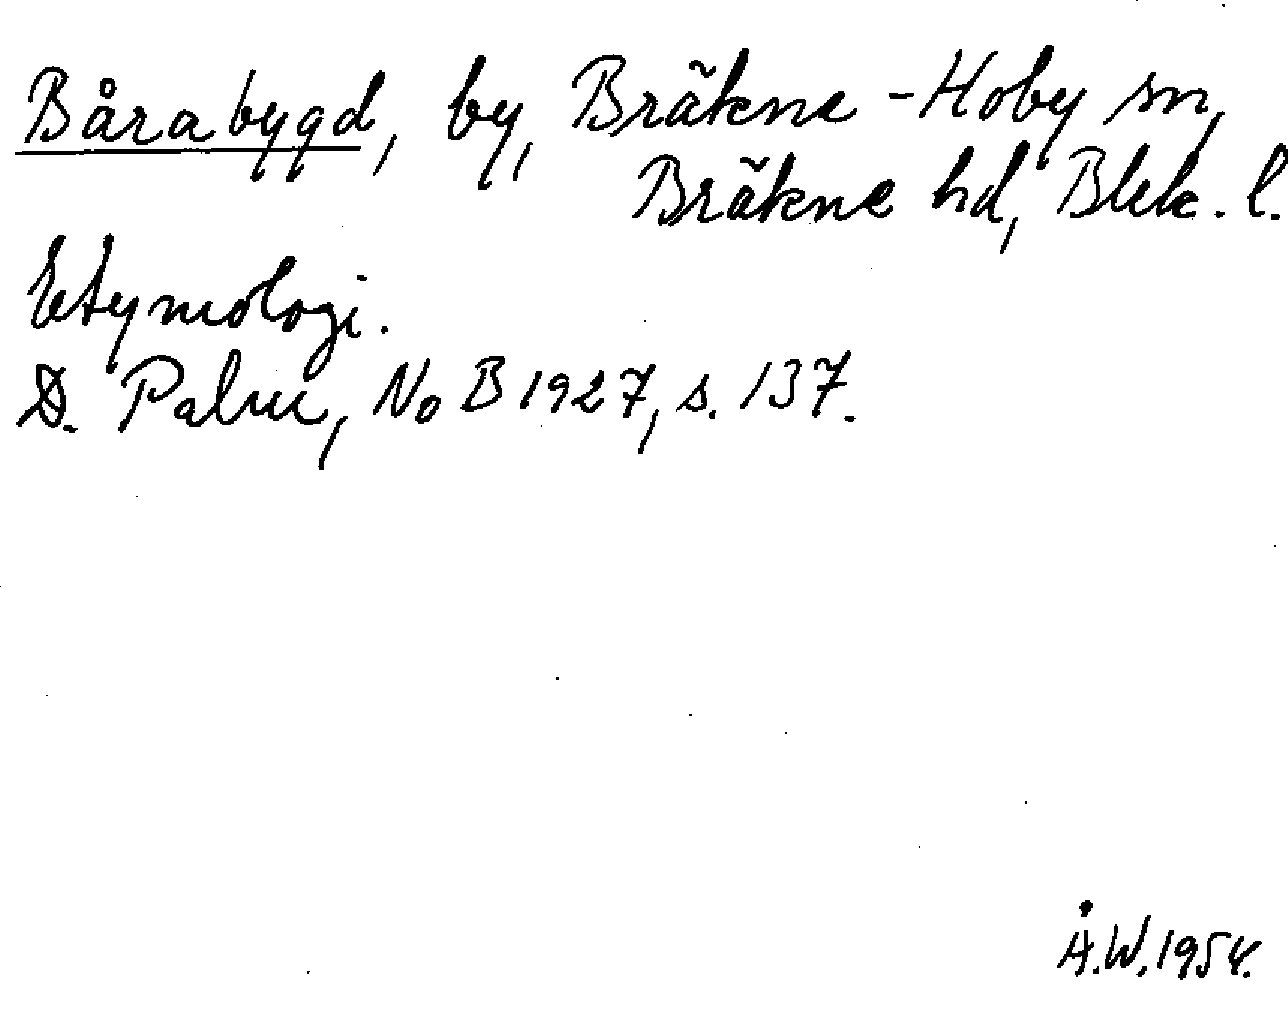 Bårabygd, by, Bräkne-Hoby sn,
Bräkne hd, Blek. l.
Etymologi.
D. Palm, NoB 1927, s. 137.
Å.W. 1954.